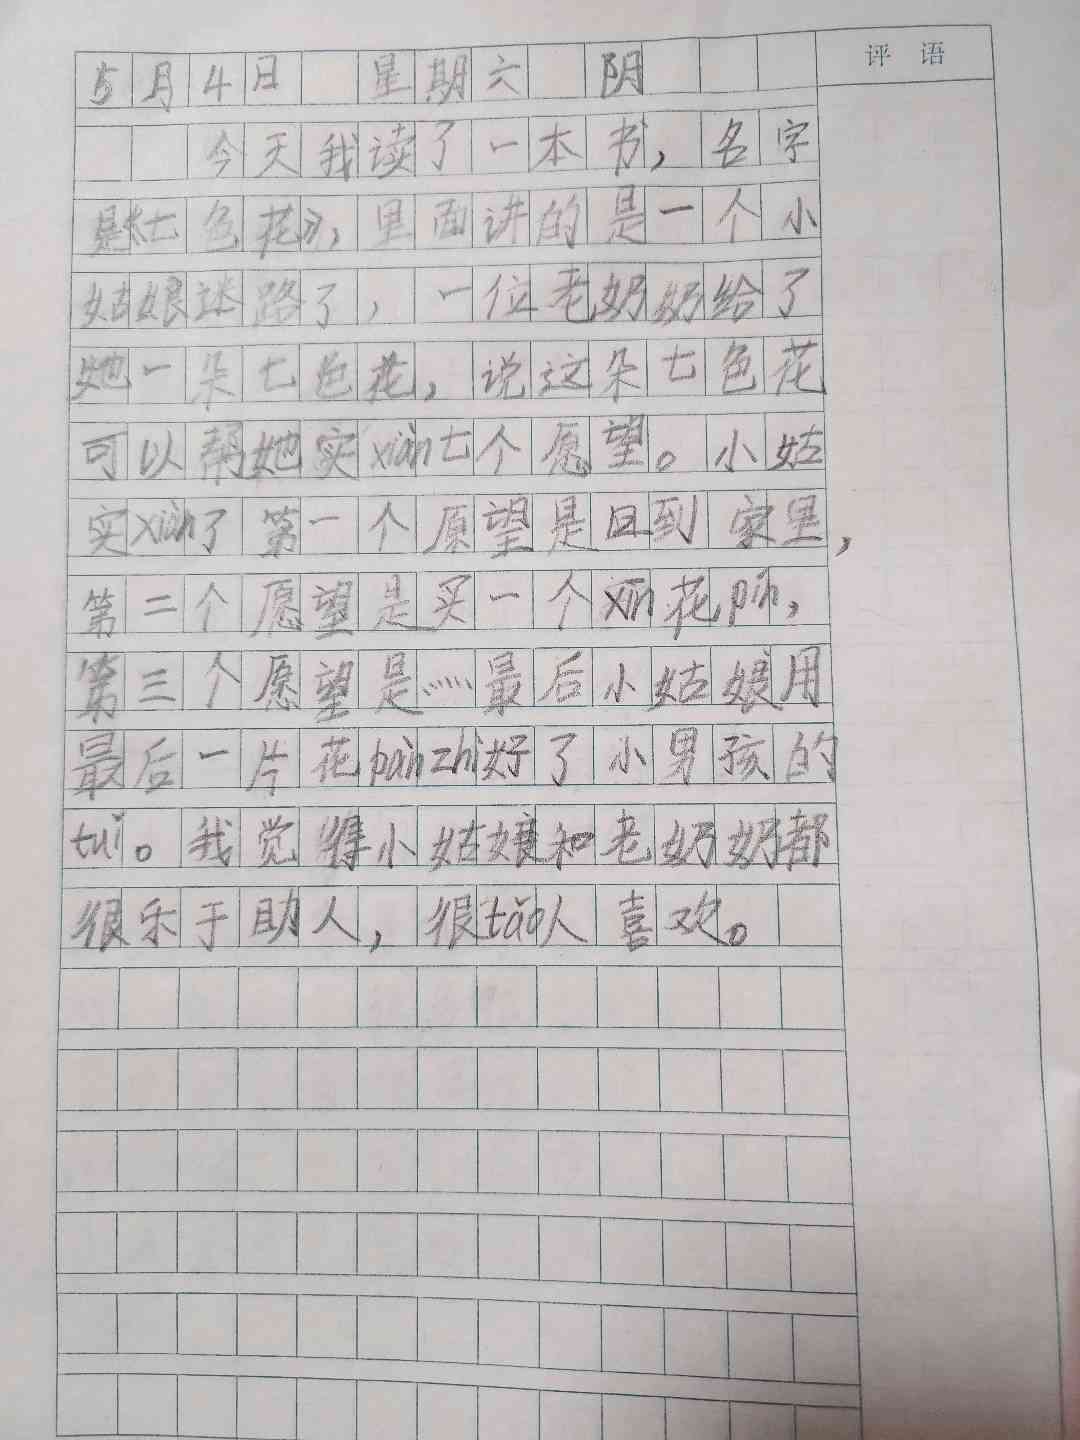 评 语
5月4日 星期六 阴
今天我读了一本书，名字
是《七色花》，里面讲的是一个小
姑娘迷路了，一位老奶奶给了
她一朵七色花，说这朵七色花
可以帮她实xiàn七个愿望。小姑
实xiàn了第一个原望是回到家里，
第二个愿望是买一个xīn花pín，
第三个愿望是……最后小姑娘用
最后一片花bànzhì好了小男孩的
tuǐ。我觉得小姑娘和老奶奶都
很乐于助人，很tǎo人喜欢。